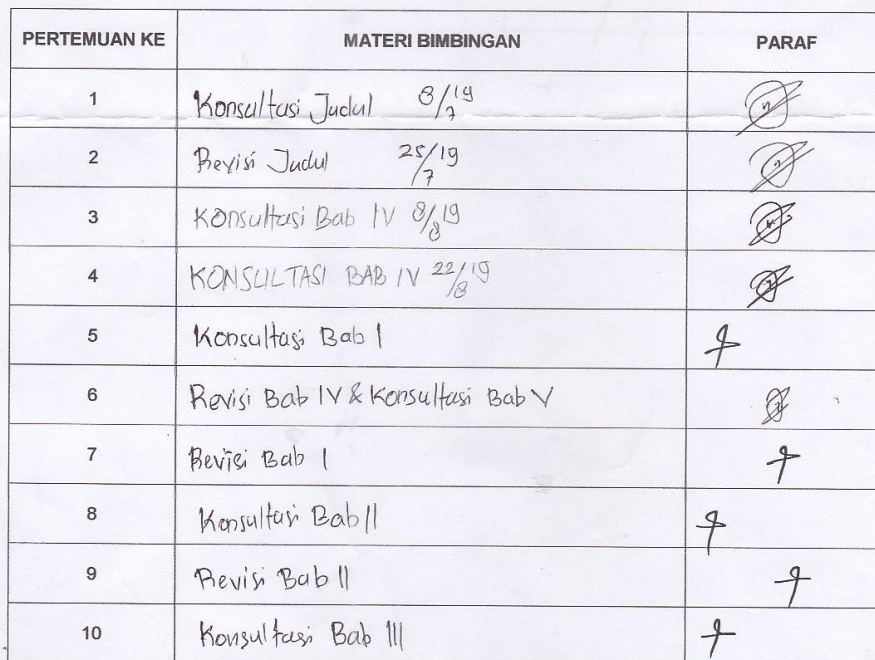 PERTEMUAN KE MATERI BIMBINGAN PARAF
1 Konsultasi Judul 8/19 7
2 Revisi Judul 25/19 7
3 Konsultasi Bab IV 8/19 8
4 KONSULTASI BAB IV 22/19 8
5 Konsultasi Bab I
6 Revisi Bab IV & Konsultasi Bab V
7 Revisi Bab I
8 Konsultasi Bab II
9 Revisi Bab II
10 Konsultasi Bab III